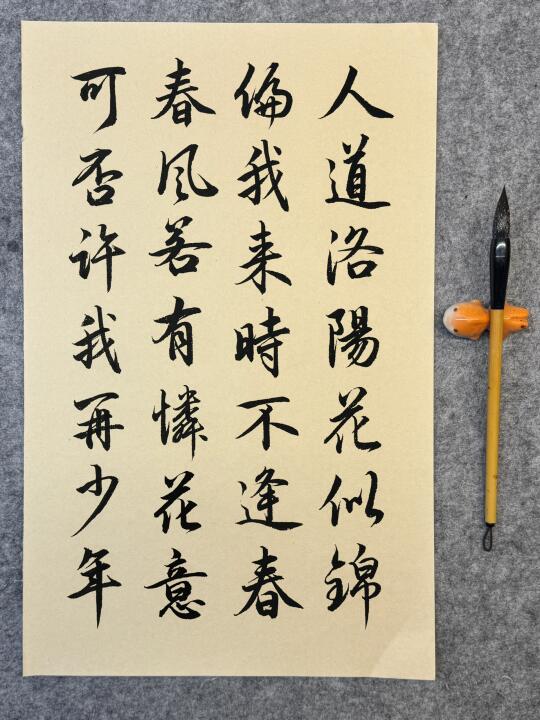 人道洛陽花似錦
偏我来時不逢春
春风若有憐花意
可否许我再少年